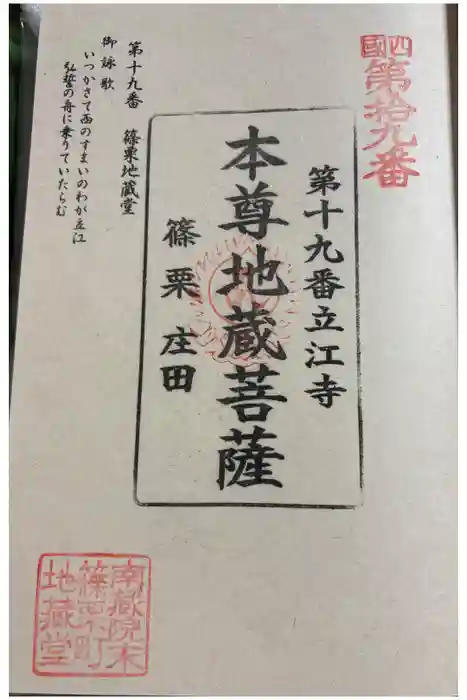 四國
第拾九番
第十九番立江寺
本尊地蔵菩薩
篠栗 庄田
第十九番 篠栗地蔵堂
御詠歌
いつかさて西のすまいのわが立江
弘誓の舟に乗りていたらむ
南蔵院末
篠栗町
地蔵堂